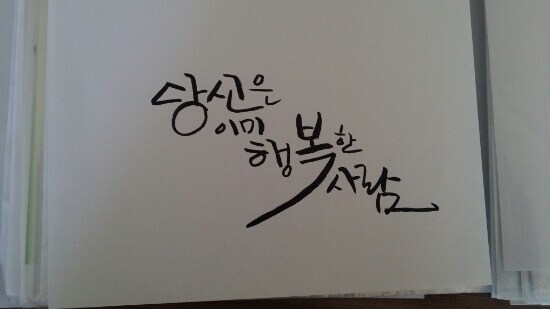 당신은
이미
행복한
사람